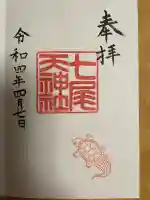 奉拝
七尾
天神社
令和四年四月七日